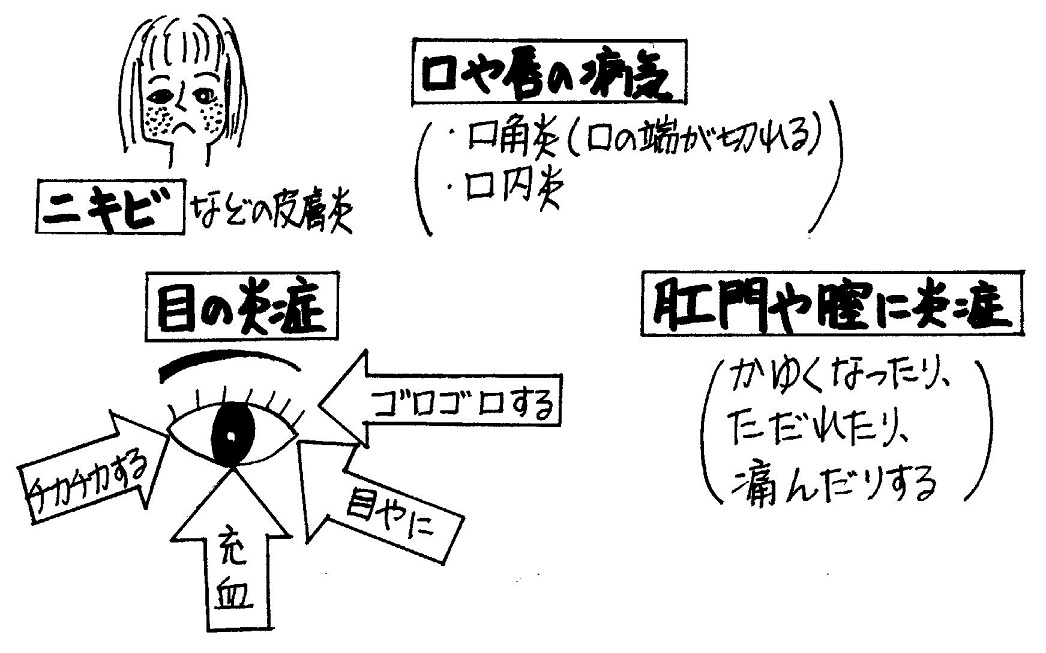 ニキビなどの皮膚炎
口や唇の病気
・口角炎(口の端が切れる)
・口内炎
目の炎症
ゴロゴロする
チカチカする
目やに
充血
肛門や膣に炎症
かゆくなったり、
ただれたり、
痛んだりする